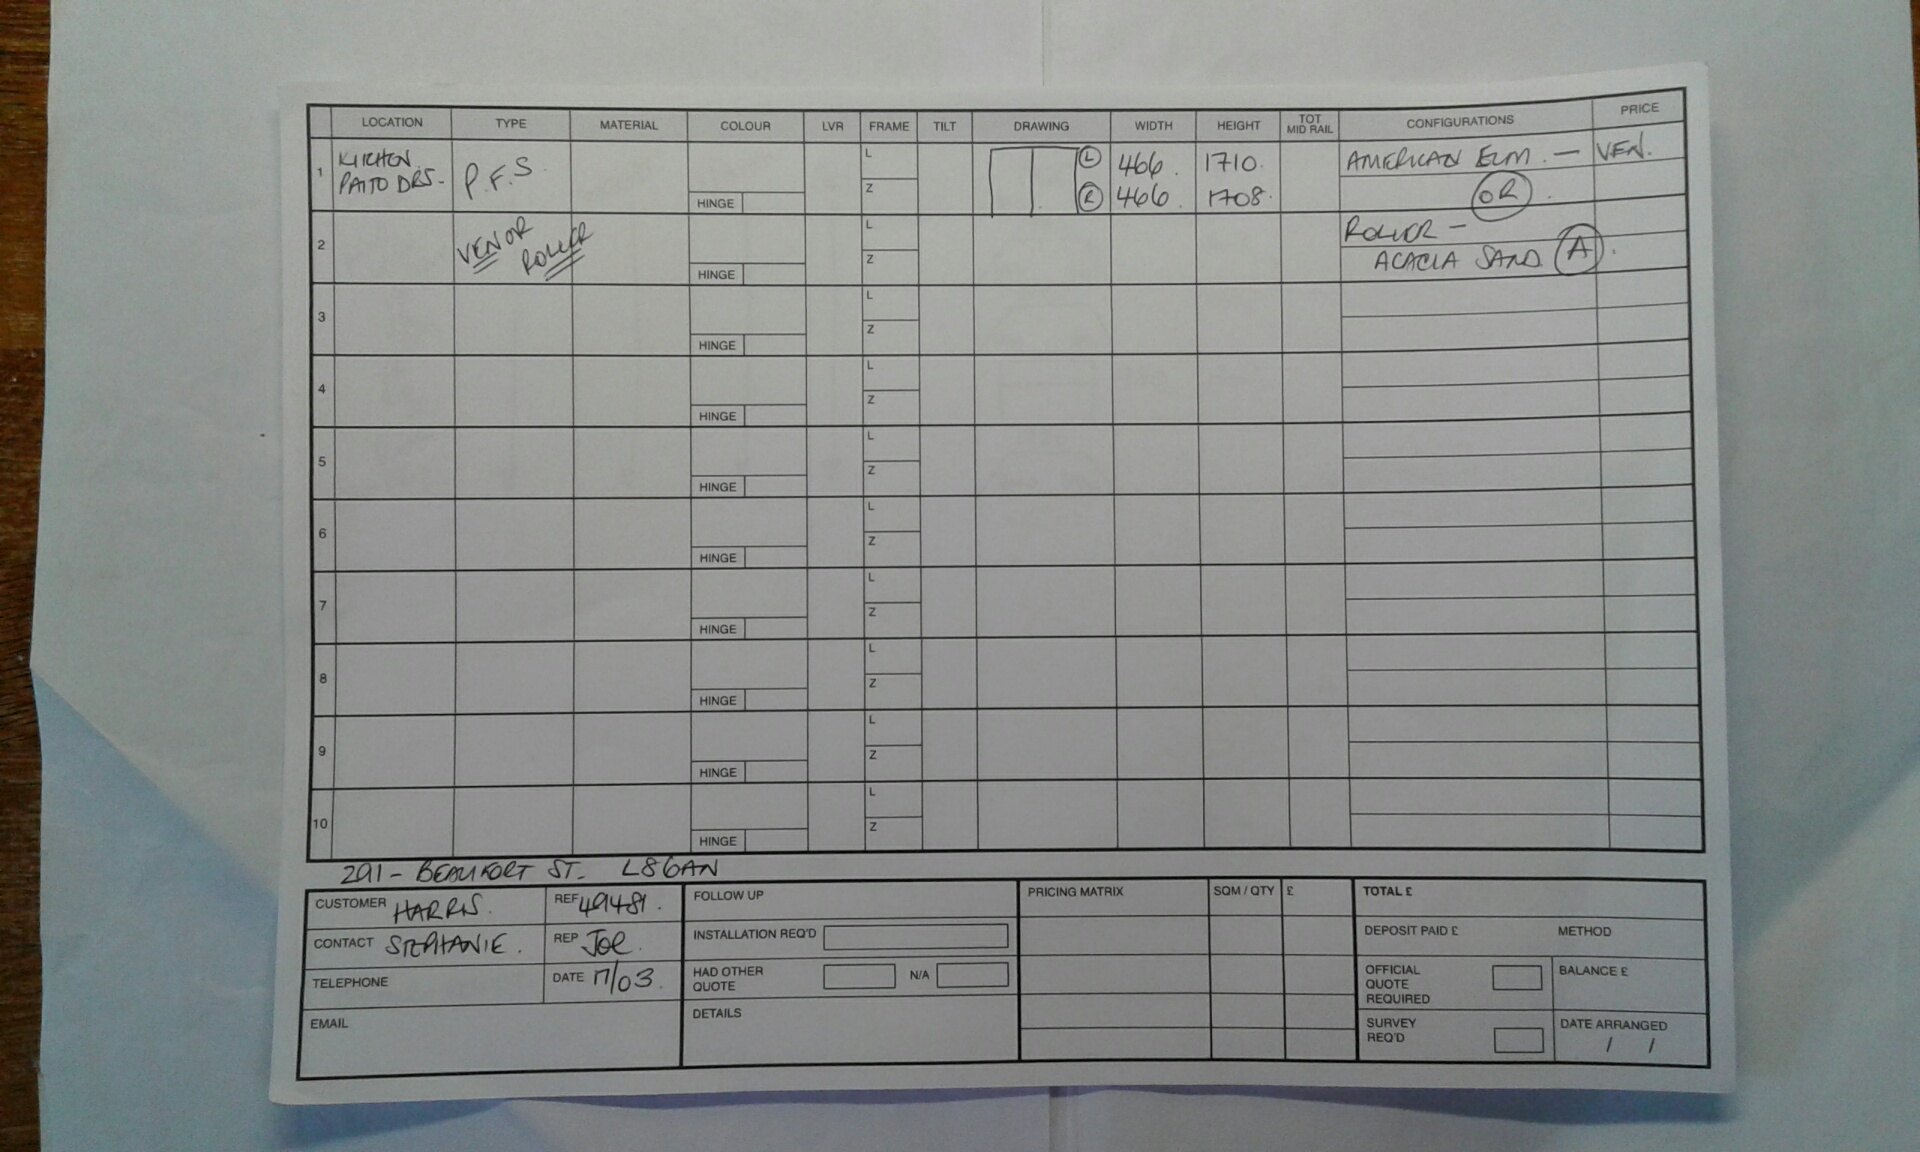 LOCATION TYPE MATERIAL COLOUR LVR FRAME TILT DRAWING WIDTH HEIGHT TOT MID RAIL CONFIGURATIONS PRICE
1 KITCHEN P.F.S. L L 466. 1710. AMERICAN ELM. — VEN.
PAITO DRS- HINGE Z R 466. 1708. OR.
2 VEN OR L ROLLER -
ROLLER HINGE Z ACACIA SAND A.
3 L
HINGE Z
4 L
HINGE Z
5 L
HINGE Z
6 L
HINGE Z
7 L
HINGE Z
8 L
HINGE Z
9 L
HINGE Z
10 L
HINGE Z
291 - BEAUFORT ST. L86AN
CUSTOMER HARRIS. REF 49481. FOLLOW UP PRICING MATRIX SQM / QTY £ TOTAL £
CONTACT STEPHANIE. REP JOE. INSTALLATION REQ'D DEPOSIT PAID £ METHOD
TELEPHONE DATE 17/03. HAD OTHER QUOTE N/A OFFICIAL QUOTE REQUIRED BALANCE £
EMAIL DETAILS SURVEY REQ'D DATE ARRANGED
/ /